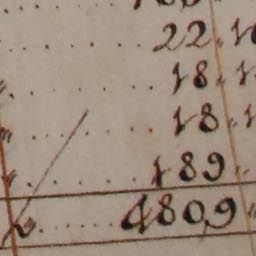 22
18
18
189
4809